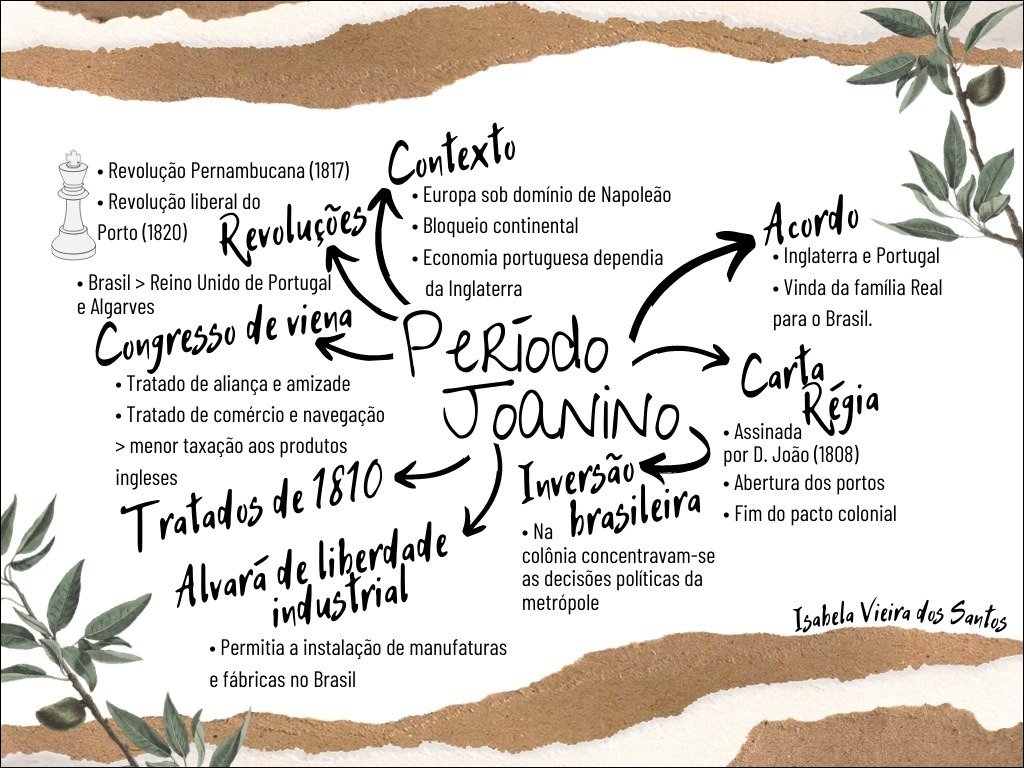 Período
Joanino
Contexto
• Europa sob domínio de Napoleão
• Bloqueio continental
• Economia portuguesa dependia
da Inglaterra
Acordo
• Inglaterra e Portugal
• Vinda da família Real
para o Brasil.
Carta
Régia
• Assinada
por D. João (1808)
• Abertura dos portos
• Fim do pacto colonial
Inversão
brasileira
• Na
colônia concentravam-se
as decisões políticas da
metrópole
Alvará de liberdade
industrial
• Permitia a instalação de manufaturas
e fábricas no Brasil
• Tratado de aliança e amizade
• Tratado de comércio e navegação
> menor taxação aos produtos
ingleses
Tratados de 1810
• Brasil > Reino Unido de Portugal
e Algarves
Congresso de viena
• Revolução Pernambucana (1817)
• Revolução liberal do
Porto (1820)
Revoluções
Isabela Vieira dos Santos